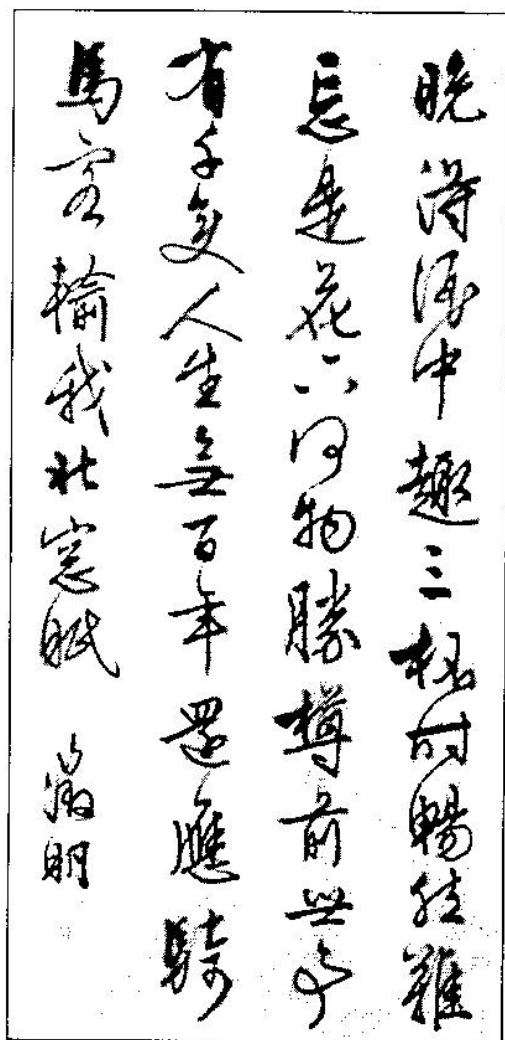 晚得酒中趣三杯时暢然難
忘是花下何物勝樽前世事
有千變人生無百年還應騎
馬客輸我北窓眠
明